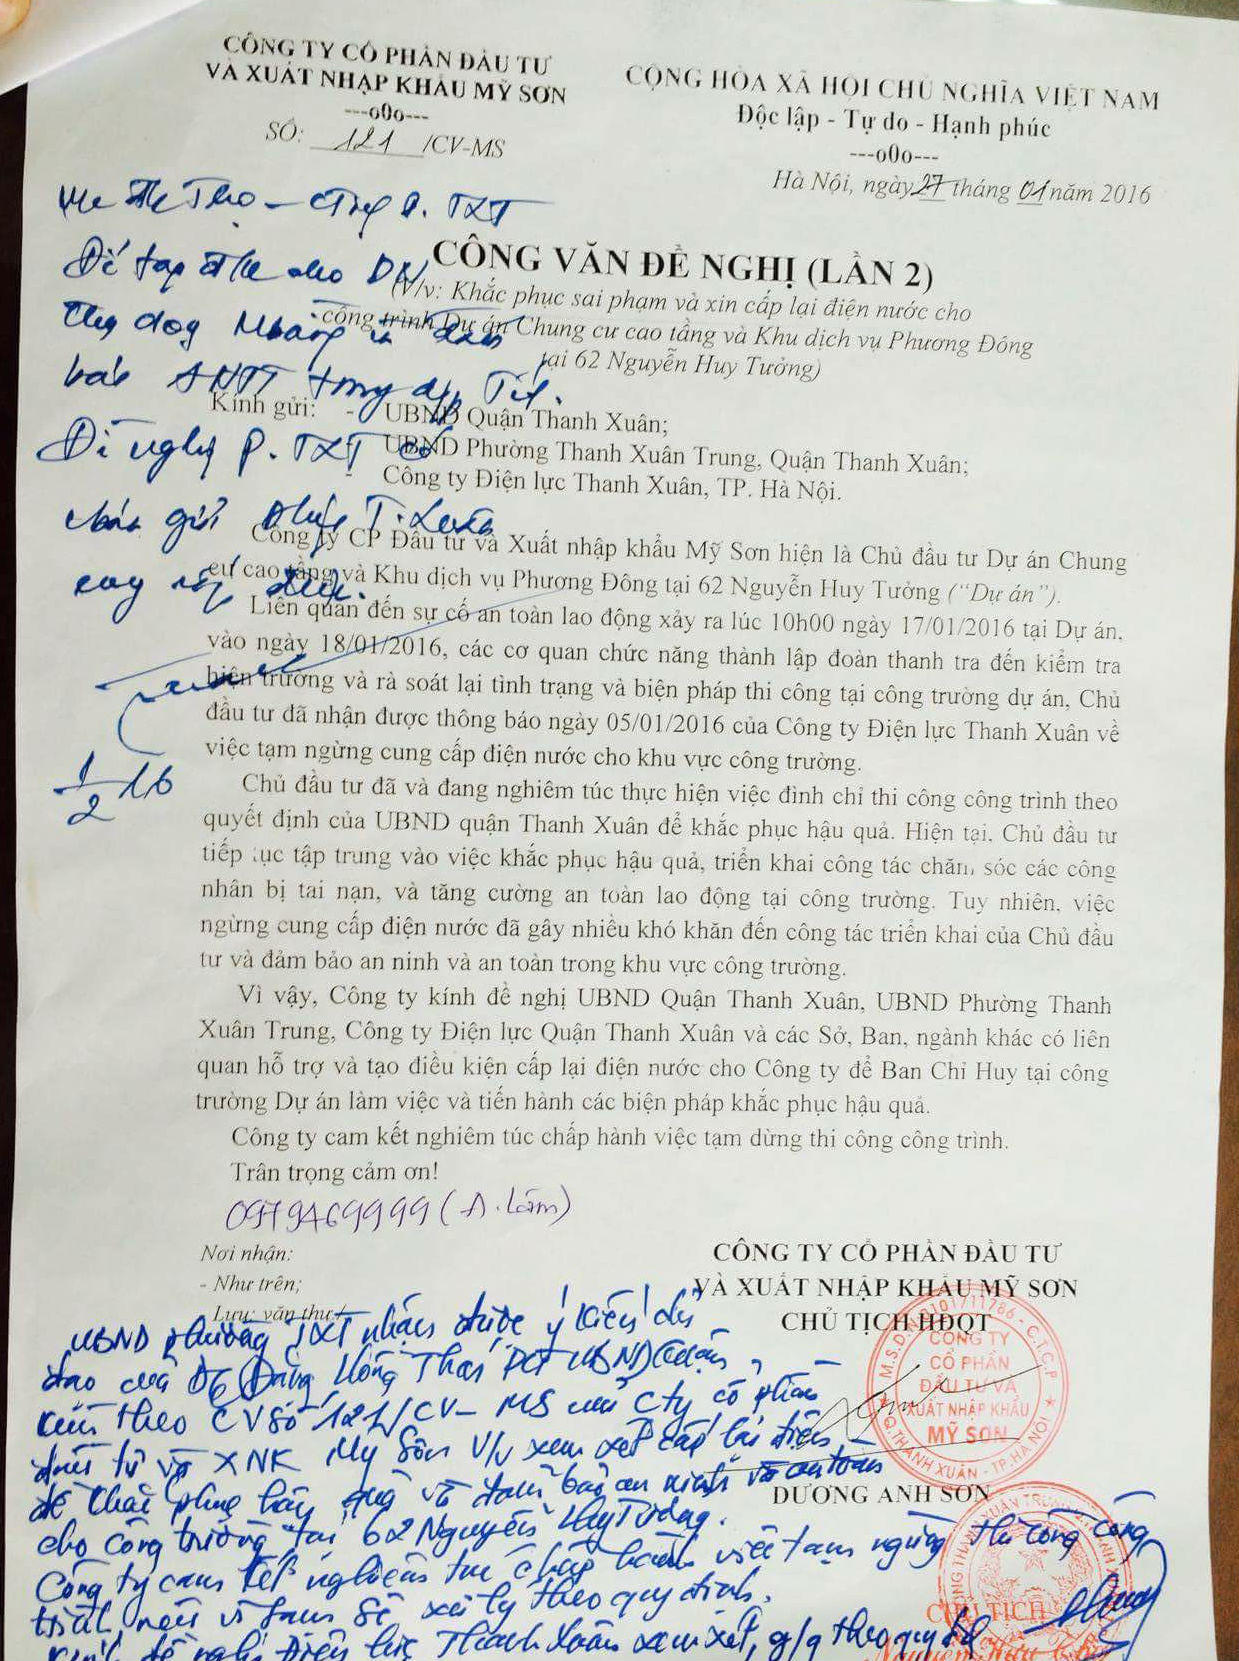 CÔNG TY CỔ PHẦN ĐẦU TƯ
VÀ XUẤT NHẬP KHẨU MỸ SƠN
---o0o---
SỐ: 121 /CV-MS
CỘNG HÒA XÃ HỘI CHỦ NGHĨA VIỆT NAM
Độc lập - Tự do - Hạnh phúc
---o0o---
Hà Nội, ngày 27 tháng 01 năm 2016
P. TXT
CÔNG VĂN ĐỀ NGHỊ (LẦN 2)
(V/v: Khắc phục sai phạm và xin cấp lại điện nước cho
công trình Dự án Chung cư cao tầng và Khu dịch vụ Phương Đông
tại 62 Nguyễn Huy Tưởng)
Kính gửi: - UBND Quận Thanh Xuân;
- UBND Phường Thanh Xuân Trung, Quận Thanh Xuân;
- Công ty Điện lực Thanh Xuân, TP. Hà Nội.
Đề nghị P. TXT có
Công ty CP Đầu tư và Xuất nhập khẩu Mỹ Sơn hiện là Chủ đầu tư Dự án Chung
cư cao tầng và Khu dịch vụ Phương Đông tại 62 Nguyễn Huy Tưởng (“Dự án”).
Liên quan đến sự cố an toàn lao động xảy ra lúc 10h00 ngày 17/01/2016 tại Dự án,
vào ngày 18/01/2016, các cơ quan chức năng thành lập đoàn thanh tra đến kiểm tra
hiện trường và rà soát lại tình trạng và biện pháp thi công tại công trường dự án, Chủ
đầu tư đã nhận được thông báo ngày 05/01/2016 của Công ty Điện lực Thanh Xuân về
việc tạm ngừng cung cấp điện nước cho khu vực công trường.
1/2 16
Chủ đầu tư đã và đang nghiêm túc thực hiện việc đình chỉ thi công công trình theo
quyết định của UBND quận Thanh Xuân để khắc phục hậu quả. Hiện tại, Chủ đầu tư
tiếp tục tập trung vào việc khắc phục hậu quả, triển khai công tác chăm sóc các công
nhân bị tai nạn, và tăng cường an toàn lao động tại công trường. Tuy nhiên, việc
ngừng cung cấp điện nước đã gây nhiều khó khăn đến công tác triển khai của Chủ đầu
tư và đảm bảo an ninh và an toàn trong khu vực công trường.
Vì vậy, Công ty kính đề nghị UBND Quận Thanh Xuân, UBND Phường Thanh
Xuân Trung, Công ty Điện lực Quận Thanh Xuân và các Sở, Ban, ngành khác có liên
quan hỗ trợ và tạo điều kiện cấp lại điện nước cho Công ty để Ban Chỉ Huy tại công
trường Dự án làm việc và tiến hành các biện pháp khắc phục hậu quả.
Công ty cam kết nghiêm túc chấp hành việc tạm dừng thi công công trình.
Trân trọng cảm ơn!
0979469999 (A. Lâm)
Nơi nhận:
- Như trên;
- Lưu: văn thư./.
CÔNG TY CỔ PHẦN ĐẦU TƯ
VÀ XUẤT NHẬP KHẨU MỸ SƠN
CHỦ TỊCH HĐQT
CÔNG TY
CỔ PHẦN
ĐẦU TƯ VÀ
XUẤT NHẬP KHẨU
MỸ SƠN
Q.THANH XUÂN - TP.HÀ NỘI
DƯƠNG ANH SƠN
UBND phường TXT nhận được ý kiến chỉ
đạo của Đ/c Đặng Hồng Thái PCT UBND Quận,
theo CV số 121/CV-MS của Cty cổ phần
đầu tư và XNK Mỹ Sơn V/v xem xét cấp lại điện
để khắc phục hậu quả và đảm bảo an ninh và an toàn
cho công trường tại 62 Nguyễn Huy Tưởng.
Công ty cam kết nghiêm túc chấp hành việc tạm ngừng thi công công
trình, nếu vi phạm sẽ xử lý theo quy định.
Kính đề nghị Điện lực Thanh Xuân xem xét, g/q theo quy định
CHỦ TỊCH